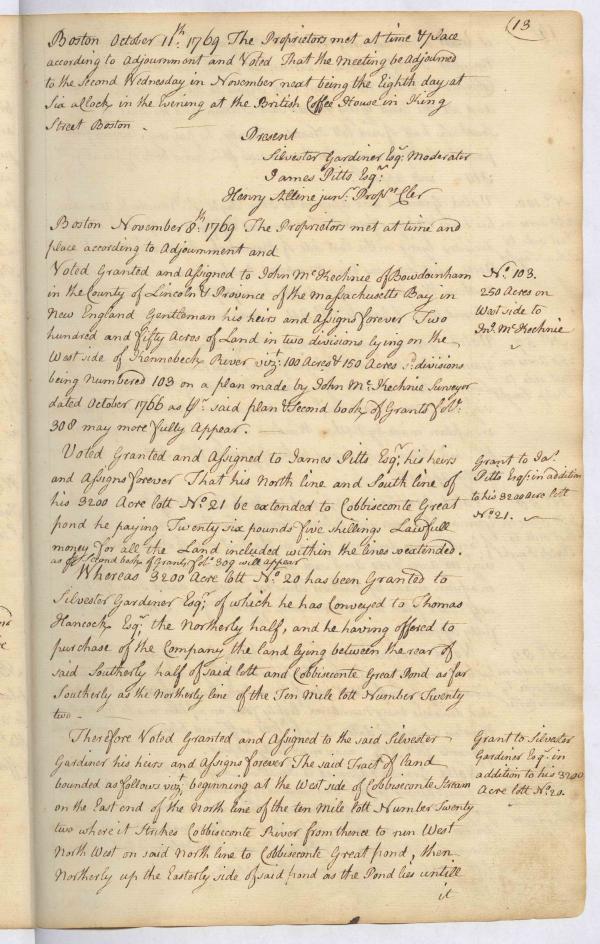 (13
Boston October 11th: 1769 The Proprietors met at time & place
according to Adjournment and Voted That the Meeting be Adjourned
to the Second Wednesday in November next being the Eighth day at
Six a Clock in the Evening at the British Coffee House in King
Street Boston.
Present
Silvester Gardiner Esqr: Moderator
James Pitts Esqr:
Henry Alline junr: Proprs Cler
Boston November 8th: 1769 The Proprietors met at time and
place according to Adjournment and
Voted Granted and Assigned to John McKechnie of Bowdoinham
in the County of Lincoln & Province of the Massachusetts Bay in
New England Gentleman his heirs and Assigns forever Two
hundred and fifty Acres of Land in two divisions lying on the
West side of Kennebeck River vizt: 100 Acres & 150 Acres sd: divisions
being Numbered 103 on a plan made by John McKechnie Surveyor
dated October 1766 as pr said plan & Second book of Grants folo:
308 may more fully Appear.
No: 103.
250 Acres on
West side to
Jno. McKechnie
Voted Granted and Assigned to James Pitts Esqr: his heirs
and Assigns forever That his North line and South line of
his 3200 Acre lott No: 21 be extended to Cobbisconte Great
pond he paying Twenty six pounds five shillings Lawfull
money for all the Land included within the lines so extended.
as pr Second book of Grants folo: 309 will appear
Grant to Jas.
Pitts Esqr: in addition
to his 3200 Acre lott
No 21.
Whereas 3200 Acre lott No: 20 has been Granted to
Silvester Gardiner Esqr: of which he has Conveyed to Thomas
Hancock Esqr: the Northerly half, and he having offered to
purchase of the Company the land lying between the rear of
said Southerly half of said lott and Cobbisconte Great Pond as far
Southerly as the Northerly line of the Ten Mile lott Number Twenty
two.
Therefore Voted Granted and Assigned to the said Silvester
Gardiner his heirs and Assigns forever The said Tract of land
bounded as follows vizt: beginning at the West side of Cobbisconte Stream
on the East end of the North line of the ten Mile lott Number Twenty
two where it Strikes Cobbisconte River from thence to run West
North West on said North line to Cobbisconte Great pond, then
Northerly up the Easterly side of said pond as the Pond lies untill
it
Grant to Silvester
Gardiner Esqr: in
addition to his 3200
Acre lott No: 20.